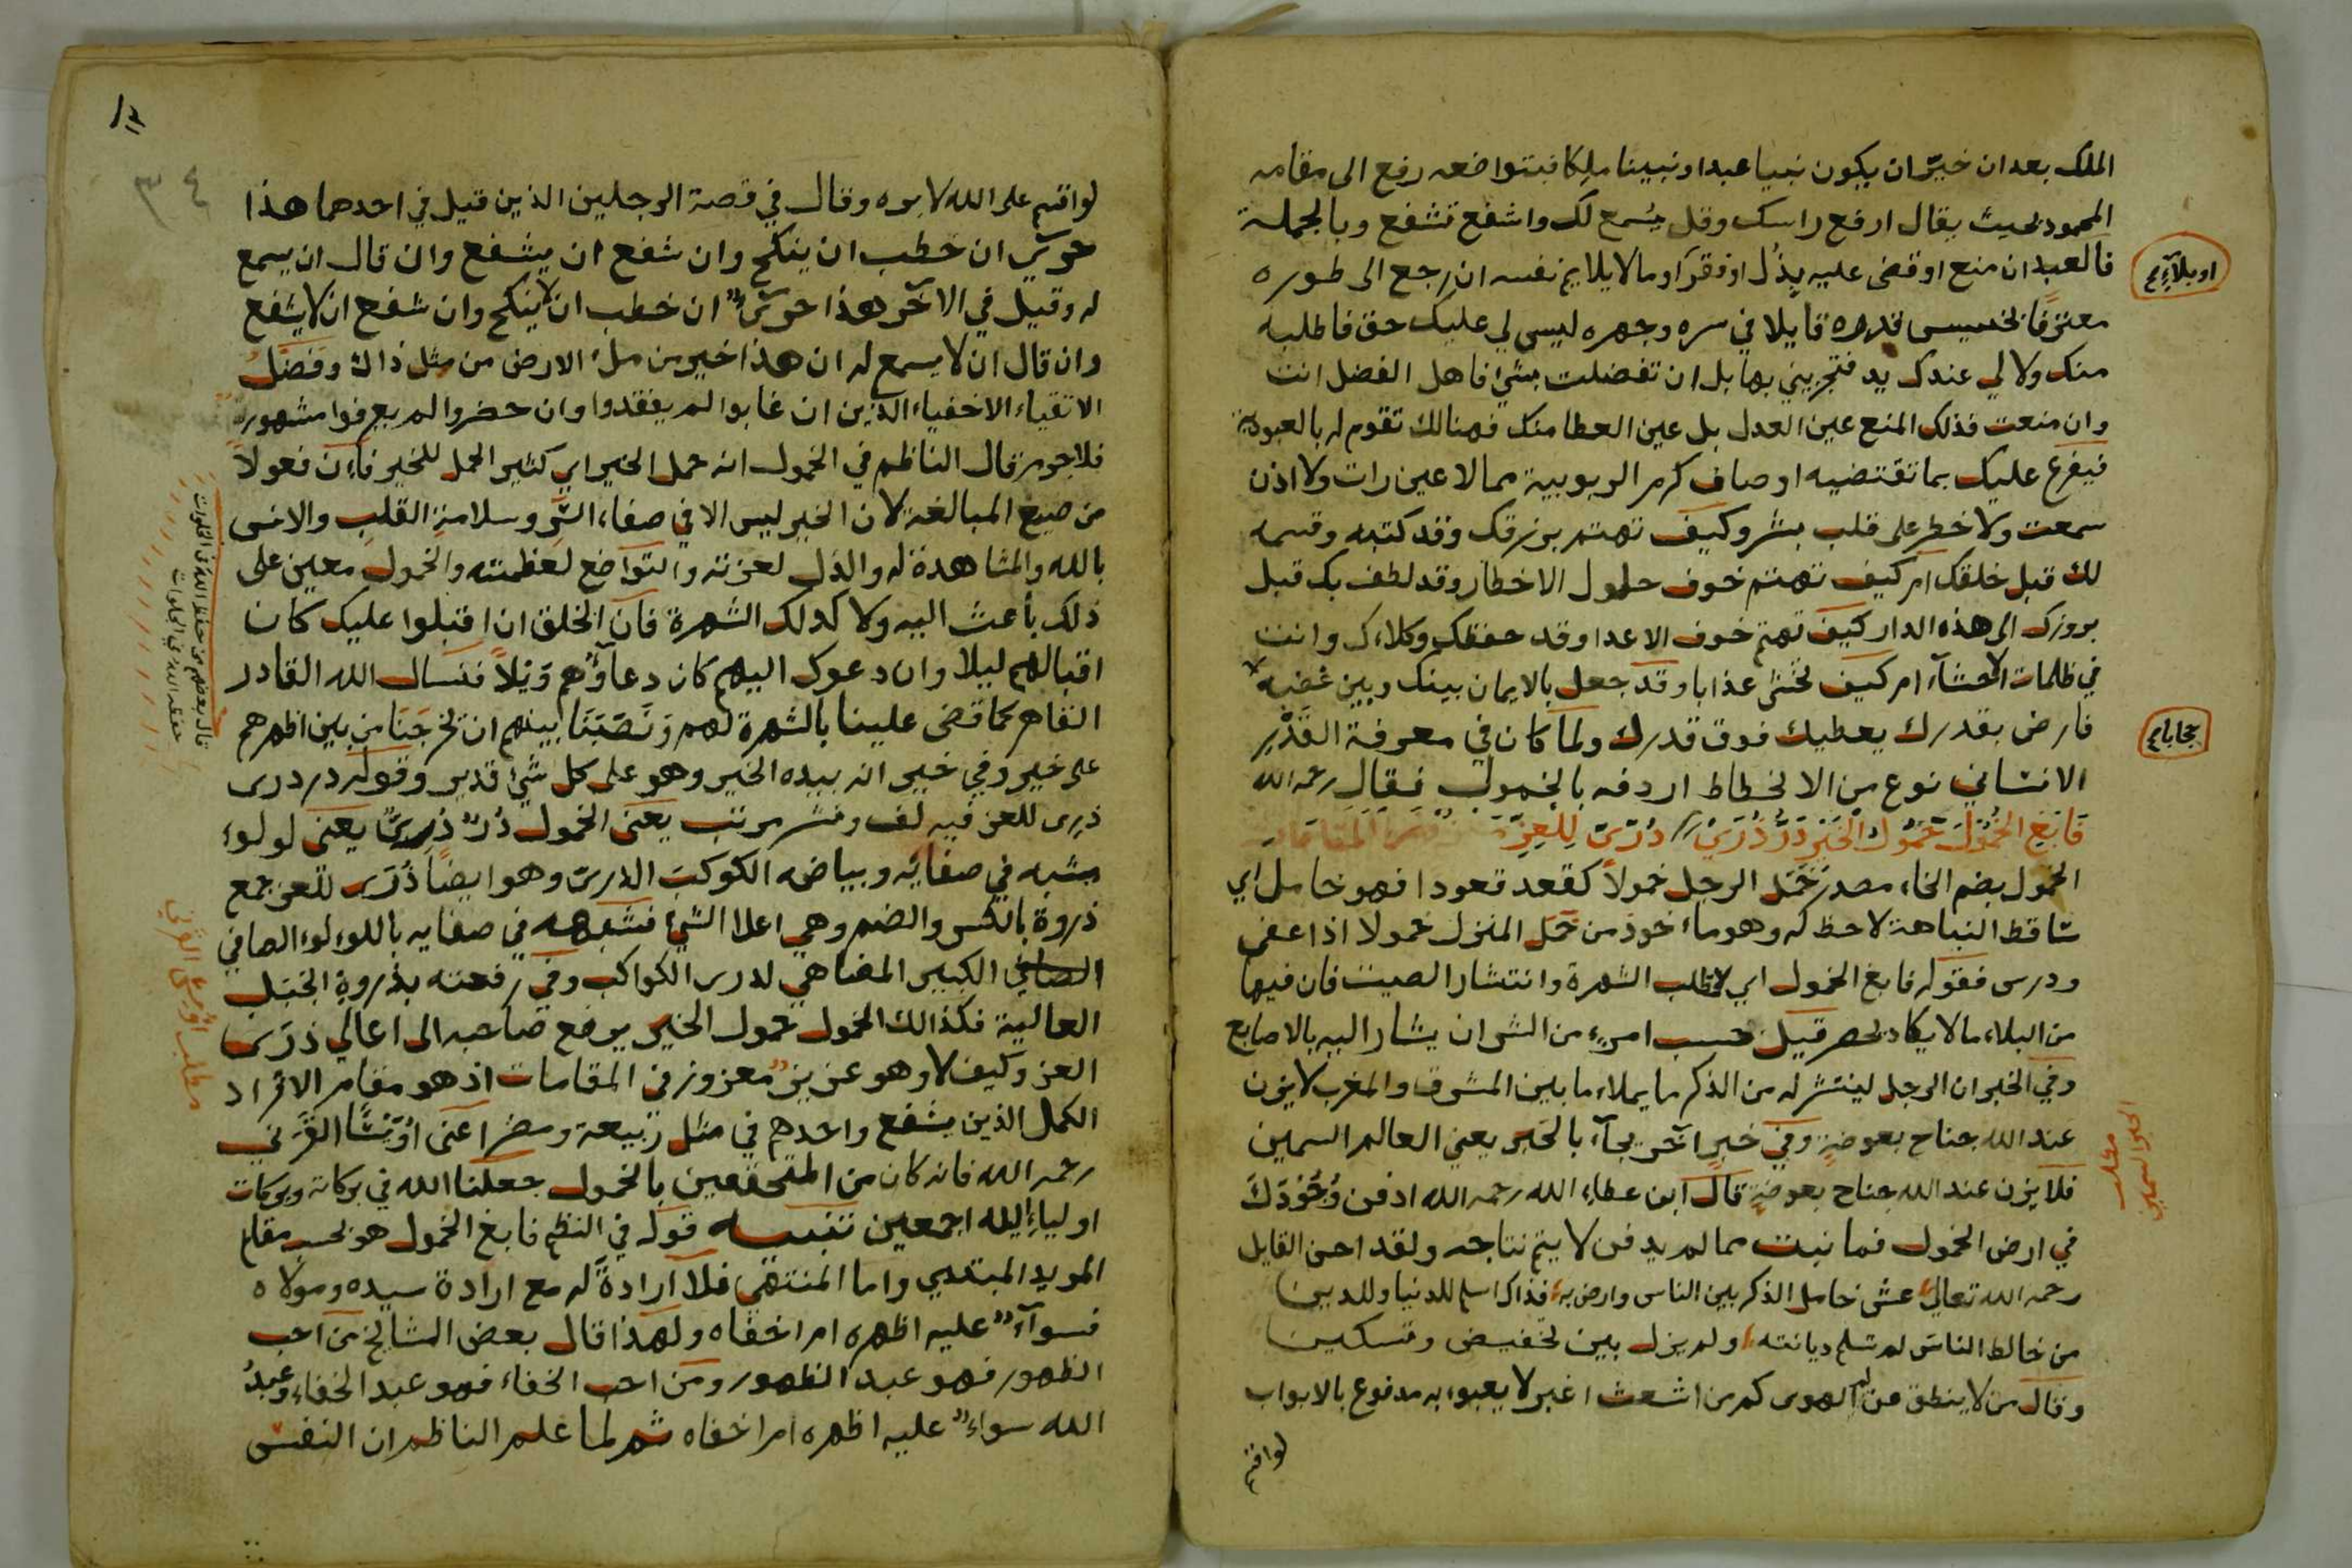 الملك بعد ان خير ان يكون نبيا عبدا او نبيا ملكا فبتواضعه رفع الى مقامه
المحمود بحيث يقال ارفع راسك وقل يسمع لك واشفع تشفع وبالجملة
فالعبد ان منع او قضى عليه بذل او فقر او ما لا يلايم نفسه ان رجع الى طوره
او بلاء
معترفا بخسيس قدره قايلا في سره وجهره ليس لي عليك حق فاطلبه
منك ولا لي عندك يد فتجزيني بها بل ان تفضلت بشئ فاهل الفضل انت
وان منعت فذلك المنع عين العدل بل عين العطا منك فهنالك تقوم له بالعبودية
فيفرغ عليك بما تقتضيه اوصاف كرم الربوبية مما لا عين رات ولا اذن
سمعت ولا خطر على قلب بشر وكيف تهتم برزقك وقد كتبه وقسمه
لك قبل خلقك ام كيف تهتم خوف حلول الاخطار وقد لطف بك قبل
بروزك الى هذه الدار كيف تهتم خوف الاعدا وقد حفظك وكلاءك وانت
في ظلمات الاحشاء ام كيف تخشى عذابا وقد جعل بالايمان بينك وبين غضبه
حجابا
فارض بقدرك يعطيك فوق قدرك ولما كان في معرفة القدر
الانساني نوع من الانحطاط اردفه بالخمول فقال رحمه الله
فابغ الخمول حمول الخير در ذري / دري للعز
الخمول بضم الخاء مصدر خمل الرجل خمولا كقعد قعودا فهو خامل اي
ساقط النباهة لا حظ له وهو ماءخوذ من خمل المنزل خمولا اذا عفى
ودرس فقوله فابغ الخمول اي لا تطلب الشهرة وانتشار الصيت فان فيها
من البلاء ما لا يكاد يحصر قيل حسب امرء من الشر ان يشار اليه بالاصابع
وفي الخبر ان الرجل لينتشر له من الذكر ما يملاء ما بين المشرق والمغرب لا يزن
عند الله جناح بعوضة وفي خبر اخر يجاء بالخبر يعني العالم السمين
مطلب
الحبر السمين
فلا يزن عند الله جناح بعوضة قال ابن عطاء الله رحمه الله ادفن وجودك
في ارض الخمول فما نبت مما لم يدفن لا يتم نتاجه ولقد احسن القايل
رحمه الله تعالى عش خامل الذكر بين الناس وارض به فذاك اسلم للدنيا وللدين
من خالط الناس لم تسلم ديانته ولم يزل بين تخفيض وتسكين
وقال من لا ينطق عن الهوى كم من اشعث اغبر لا يعبوء به مدفوع بالابواب
لو اقسم
٣٤
لو اقسم على الله لابره وقال في قصة الرجلين الذين قيل في احدهما هذا
حري ان خطب ان ينكح وان شفع ان يشفع وان قال ان يسمع
له وقيل في الاخر هذا حري ان خطب ان لا ينكح وان شفع ان لا يشفع
وان قال ان لا يسمع له ان هذا خير من ملء الارض من مثل ذاك وفضل
الاتقياء الاخفياء الذين ان غابوا لم يفقدوا وان حضروا لم يعرفوا مشهور
فلا جرم قال الناظم في الخمول انه حمل الخير اي كثير الحمل للخير فان فعولا
من صيغ المبالغة لان الخير ليس الا في صفاء السر وسلامة القلب والانس
بالله والمشاهدة له والذل لعزته والتواضع لعظمته والخمول معين على
ذلك باعث اليه ولا كذلك الشهرة فان الخلق ان اقبلوا عليك كان
اقبالهم ليلا وان دعوك اليهم كان دعاؤهم ويلا فنسال الله القادر
القاهر كما قضى علينا بالشهرة لهم ونصبنا بينهم ان تخرجنا من بين اظهرهم
قال بعضهم من حفظ الله في الخلوات
حفظه الله في الجلوات
على خير وفي خير انه بيده الخير وهو على كل شئ قدير وقوله در درى
ذرى للعز فيه لف ونشر مرتب يعنى الخمول در دري يعنى لولوء
مشبه في صفائه وبياضه الكوكب الدري وهو ايضا ذرى للعز جمع
ذروة بالكسر والضم وهي اعلا الشئ فشبهه في صفايه باللولوء الصافي
الصافي الكبير المضاهي لدرى الكواكب وفي رفعته بذروة الجبل
العالية فكذالك الخمول حمول الخير يرفع صاحبه الى اعالي ذرى
العز وكيف لا وهو عزيز معزوز في المقامات اذ هو مقام الافراد
الكمل الذين يشفع واحدهم في مثل ربيعة ومضر اعنى اويسا القرني
مطلب اويس القرني
رحمه الله فانه كان من المتحققين بالخمول جعلنا الله في بركاته وبركات
اولياء الله اجمعين تنبيه قوله في النظم فابغ الخمول هو بحسب مقام
المريد المبتدي واما المنتهي فلا ارادة له مع ارادة سيده ومولاه
فسواء عليه اظهره ام اخفاه ولهذا قال بعض المشايخ من احب
الظهور فهو عبد الظهور ومن احب الخفاء فهو عبد الخفاء وعبد
الله سواء عليه اظهره ام اخفاه ثم لما علم الناظم ان النفس